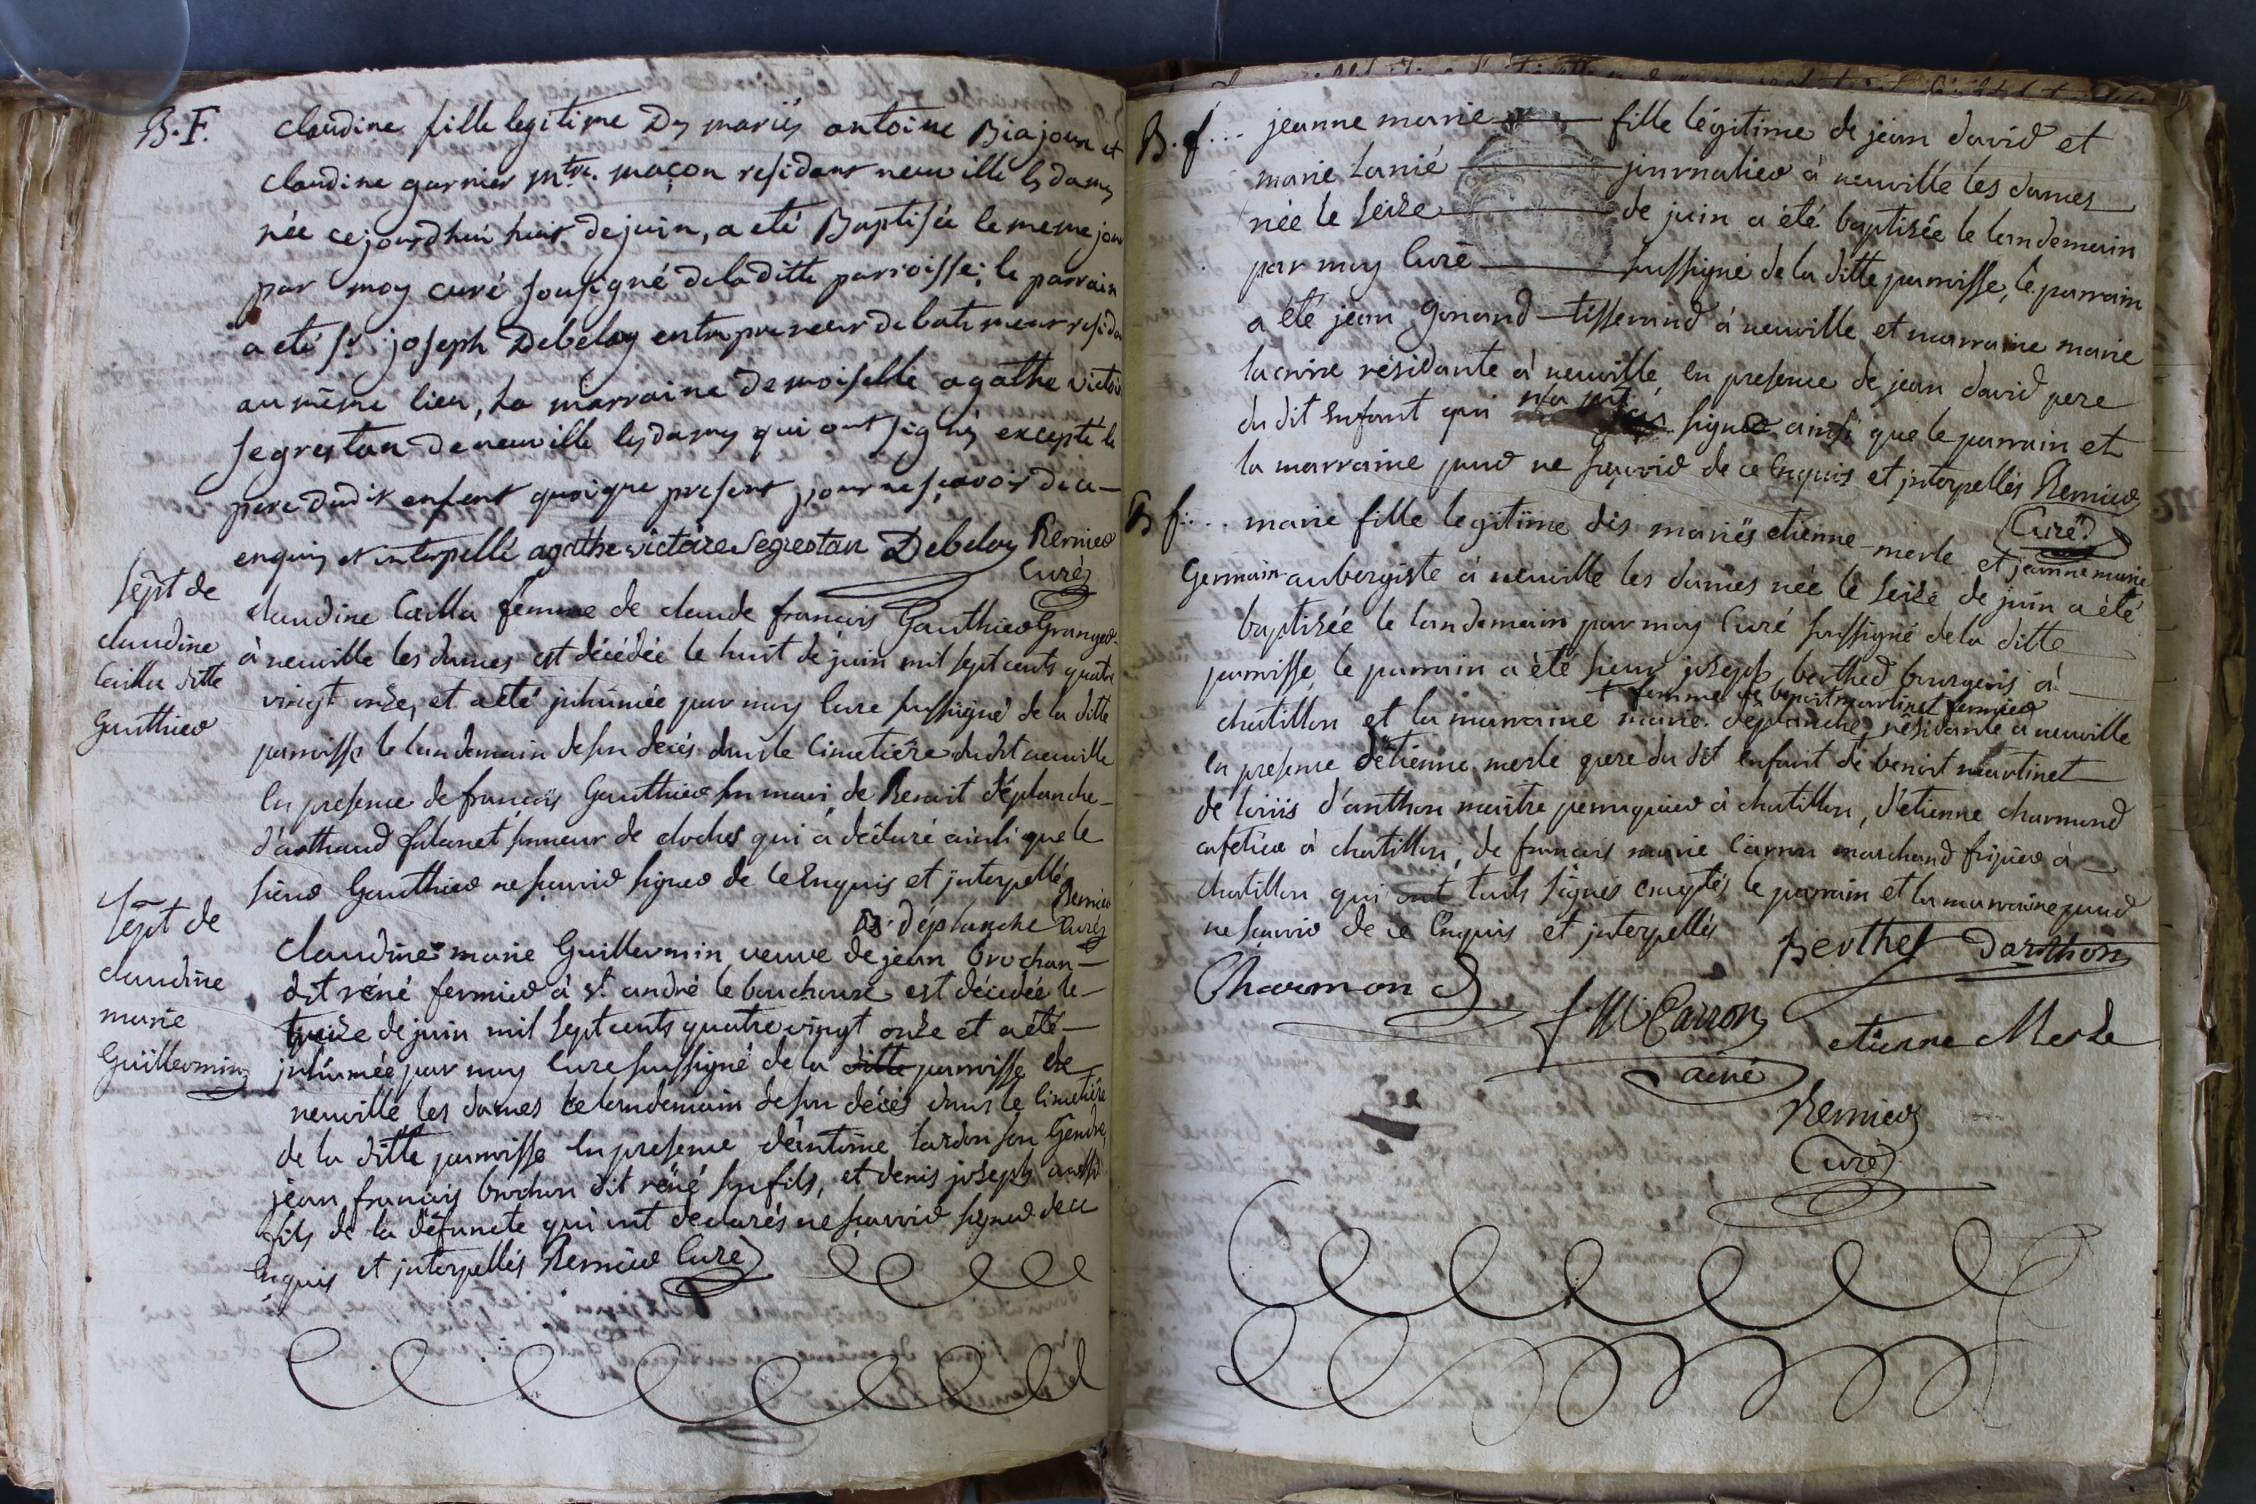 B. F.
claudine fille legitime Des mariés antoine Biajoux et
claudine garnier mtre. maçon residant neuville les dames
née cejourdhui huit de juin, a eté Baptisée le meme jour
par moy curé sousigné de la ditte parroisse; le parrain
a eté sr. joseph Debeloy entrepreneur de batiment resida
au même lieu, la marraine demoiselle agathe victoi
segrestan de neuville les dames qui ont signés excepté le
pere dudit enfant quoique present pour ne sçavoir de ce
enquis et interpellé agathe victoire segrestan Debeloy Rernier
Curé
sept de
claudine
Cailla ditte
Gauthier
claudine Cailla femme de claude françois Gauthier Granger
à neuville les dames est décédée le huit de juin mil sept cents quatre
vingt onze, et a été inhumée par moy Curé soussigné de la ditte
parroisse le landemain de son décès dans le Cimetière du dit neuville
En presence de françois Gauthier son mari, de Benoit déplanche
d'arthaud falanet sonneur de cloches qui a déclaré ainsi que le
sieur Gauthier ne sçavoir signer de ce Enquis et interpellé
B. déplanche Rernier Curé
sept de
claudine
marie
Guillermin
claudine marie Guillermin veuve de jean brochan
dit réné fermier à st. andré le bouchoux est décédée le
treize de juin mil sept cents quatre vingt onze et a été
inhumée par moy Curé soussigné de la ditte parroisse de
neuville les dames le landemain de son décès dans le Cimetière
de la ditte parroisse En presence d'antoine lardon son Gendre
jean françois brochon dit réné son fils, et denis joseph aussi
fils de la défuncte qui ont déclarés ne sçavoir signer de ce
Enquis et interpellés Rernier Curé
B. f...
jeanne marie fille légitime de jean david et
marie Lanié journalier à neuville les dames
née le seize de juin a été baptisée le landemain
par moy Curé soussigné de la ditte parroisse, le parrain
a été jean gonand tisserand à neuville et marraine marie
résidante à neuville, en presence de jean david pere
du dit Enfant qui n'a pas signé ainsi que le parrain et
la marraine pour ne sçavoir de ce Enquis et interpellés Rernier
Curé
B f...
marie fille legitime des mariés etienne merle et jeanne marie
Germain aubergiste à neuville les dames née le seize de juin a été
baptisée le landemain par moy Curé soussigné de la ditte
parroisse, le parrain a été sieur joseph berthet bourgeois à
+ femme de benoit martinet fermier
chatillon et la marraine marie déplanche + résidante à neuville
En presence d'etienne merle pere du dit Enfant de benoit martinet
de loüis d'anthon maître perruquier à chatillon, d'etienne charmond
cafetier à chatillon, de francois marie Carron marchand fripier à
chatillon qui ont touts signés exceptés le parrain et la marraine pour
ne sçavoir de ce Enquis et interpellés
Berthet Danthon
Charmond
f M Carron
ainé
etienne Merle
Rernier
Curé